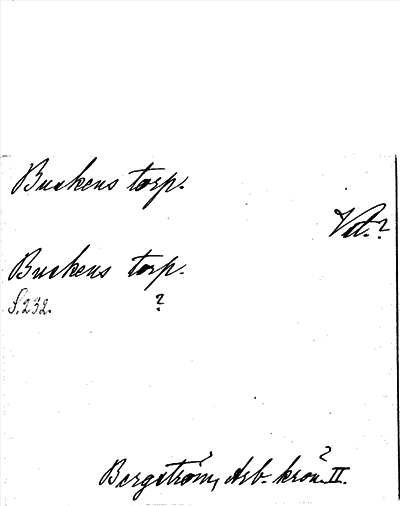 Buskens torp.
Vd.?
Buskens torp.
S. 232. ?
Bergström, Arb- krön. II.